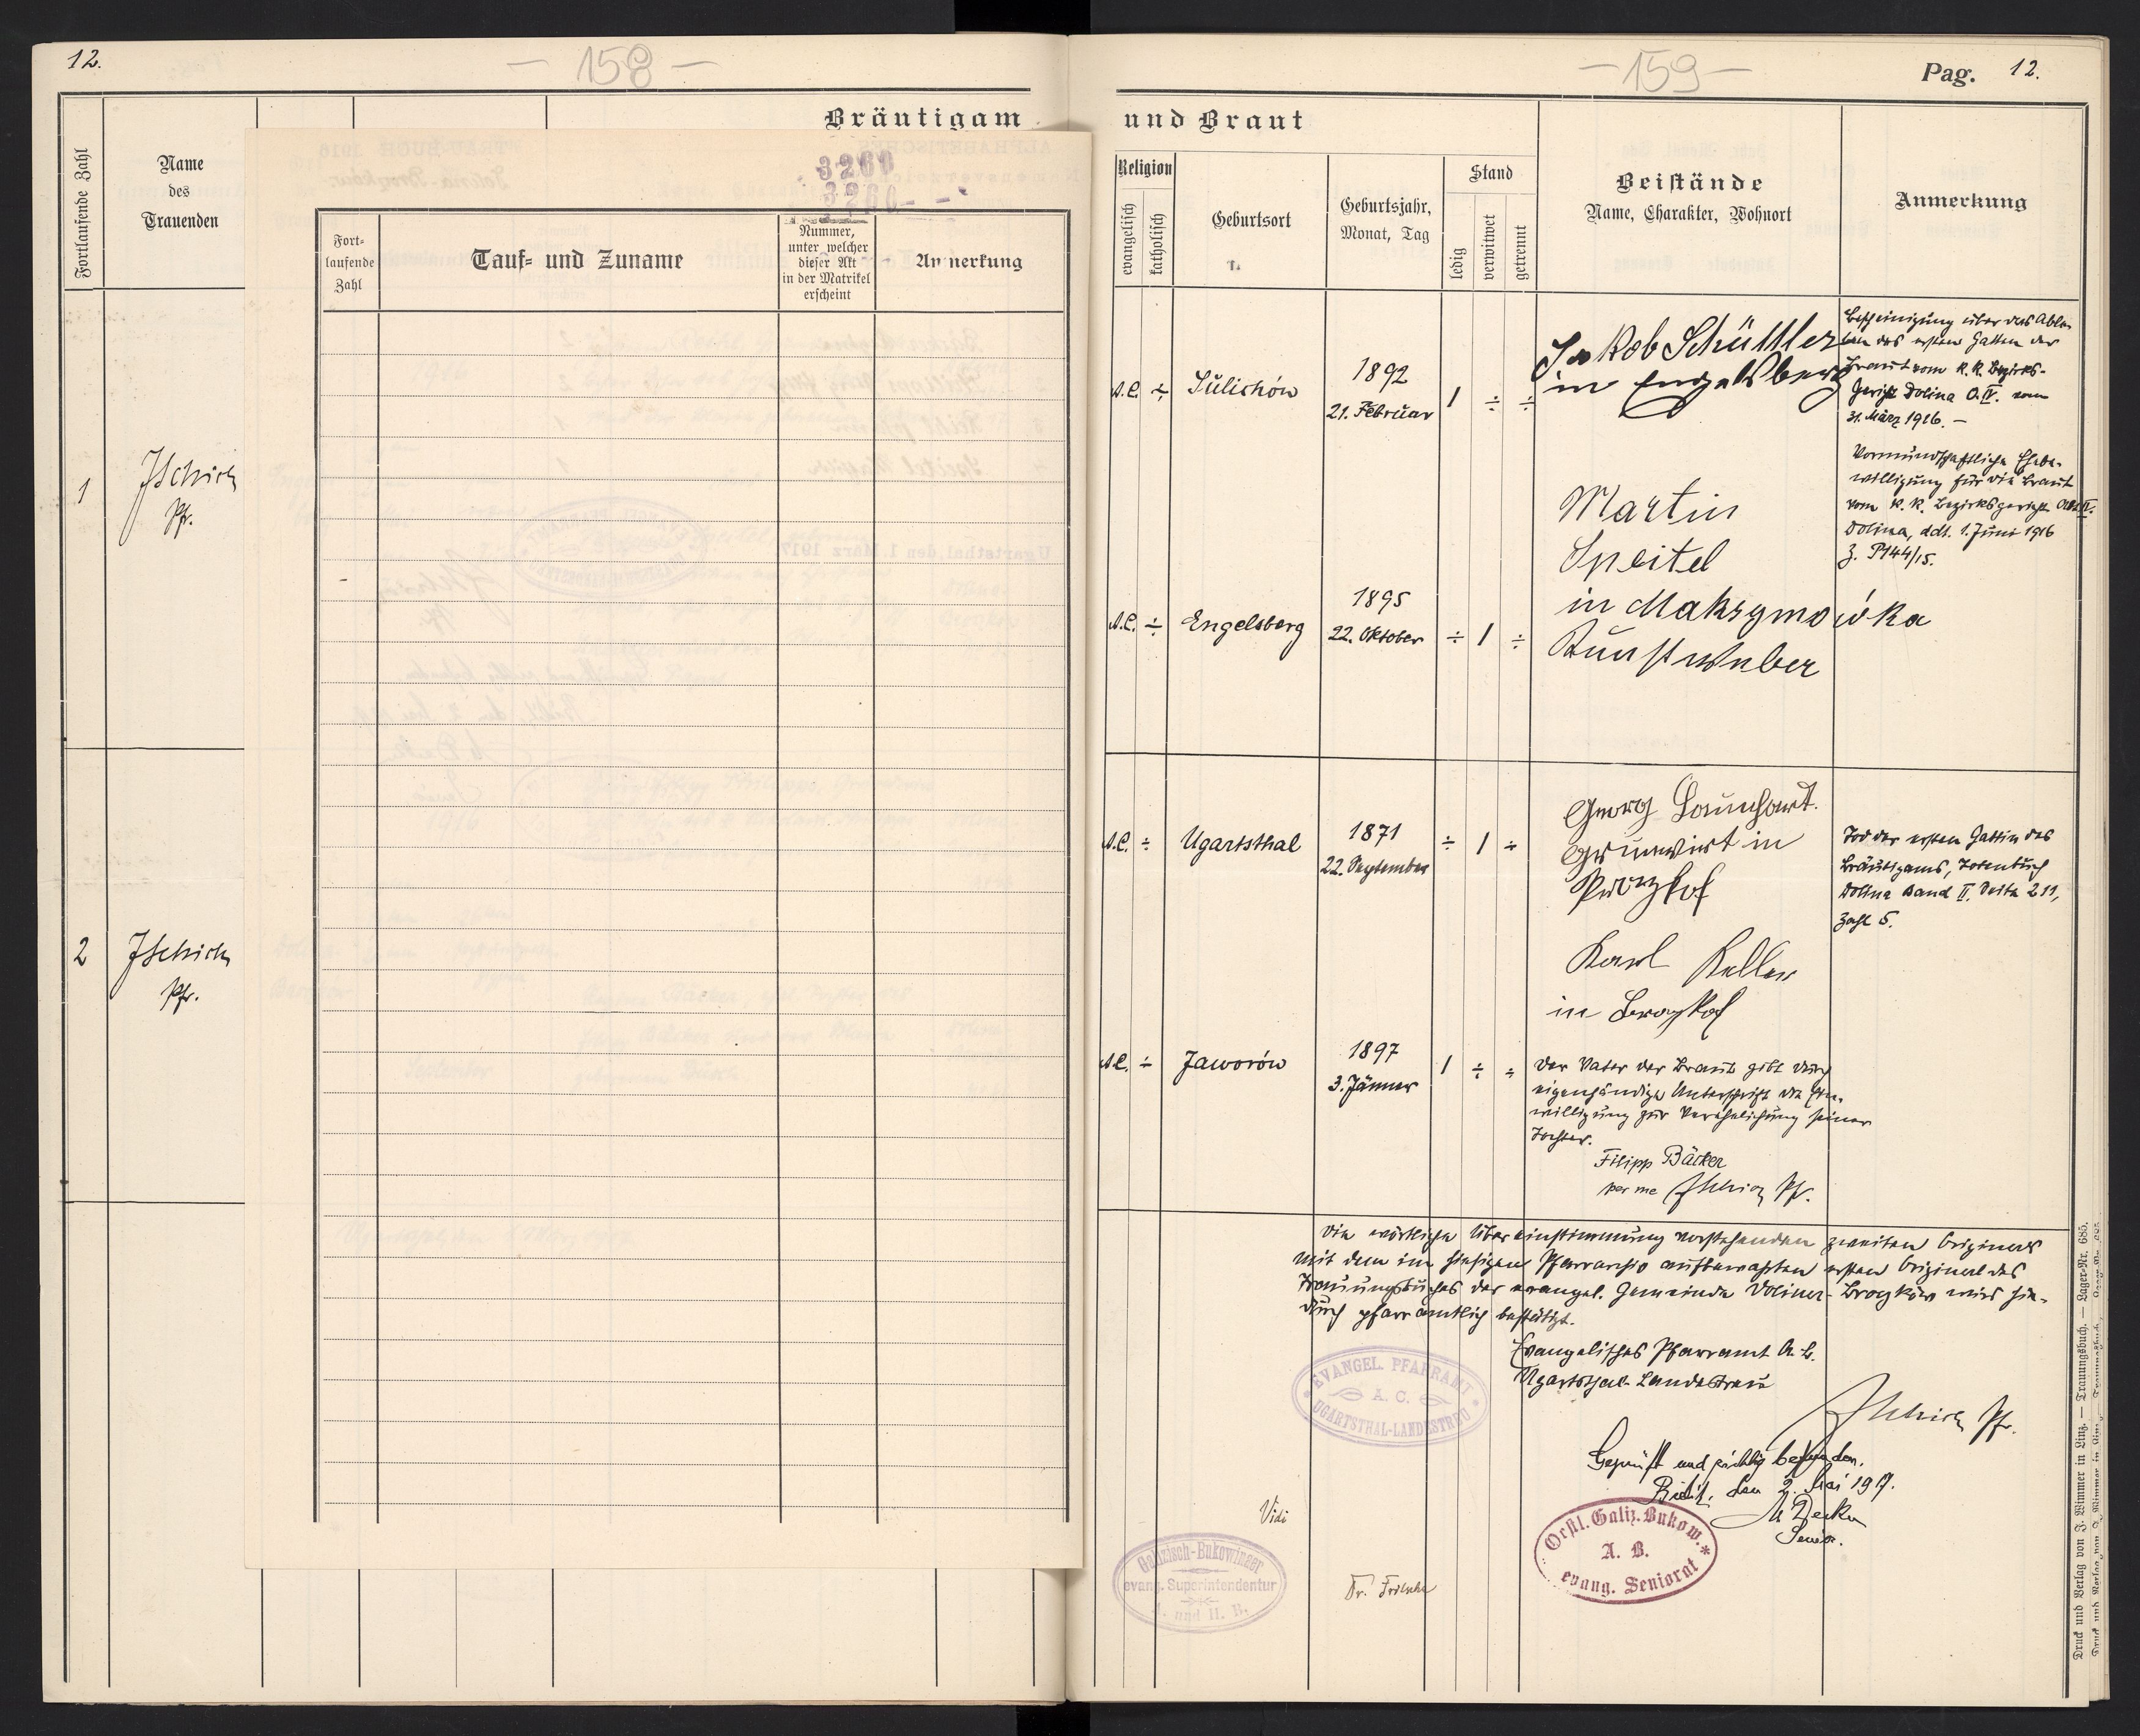 12.
— 158 —
Bräutigam
Fortlaufende Zahl
Name
des
Trauenden
1
Pfr.
2
Pfr.
3260
3260
Fort-
laufende
Zahl
Tauf- und Zuname
Nummer,
unter welcher
dieser Akt
in der Matrikel
erscheint
Anmerkung
— 159 —
Pag. 12.
und Braut
Religion
evangelisch
katholisch
Geburtsort
Geburtsjahr,
Monat, Tag
Stand
ledig
verwitwet
getrennt
Beistände
Name, Charakter, Wohnort
Anmerkung
A.C. ÷ Sulichów
1892
21. Februar
1 ÷ ÷
Jakob Schüttler
in Engelsberg
Bescheinigung über das Able-
ben des ersten Gatten der
Braut vom K.K. Bezirks-
Gericht Dolina O.IV. vom
31. März 1916. —
Vormundschaftliche Ehebe-
willigung für die Braut
vom K.K. Bezirksgericht
Dolina, ddt. 1. Juni 1916
Z. P144/15.
Martin
Speitel
in Maksymówka
Kunstweber
A.C. ÷ Engelsberg
1895
22. Oktober
÷ 1 ÷
A.C. ÷ Ugartsthal
1871
22. September
÷ 1 ÷
Georg
in
Karl Keller
in
Tod der ersten Gattin des
Bräutigams, Totenbuch
Dolina Band II. Seite 211,
Zahl 5.
A.C. ÷ Jaworów
1897
3. Jänner
1 ÷ ÷
Der Vater der Braut gibt durch
eigenhändige Unterschrift die Ein-
willigung zur Verehelichung seiner
Tochter.
Filipp Bäcker
per me Pfr.
Die wörtliche Übereinstimmung vorstehenden zweiten Originals
mit dem im hiesigen Pfarrarchiv aufbewahrten ersten Original des
Trauungsbuches der evangel. Gemeinde Dolina-Broczków wird hie-
durch pfarramtlich bestätigt.
Evangelisches Pfarramt A. B.
Ugartsthal-Landestreu
Pfr.
EVANGEL. PFARRAMT
A. C.
UGARTSTHAL-LANDESTREU
Geprüft und richtig befunden.
den 2. Mai 1917.
Senior.
Oestl. Galiz. Bukow.
A. B.
evang. Seniorat
Vidi
Galizisch-Bukowinaer
evang. Superintendentur
A. und H. B.
Druck und Verlag von J. Wimmer in Linz. — Trauungsbuch. — Lager-Nr. 685.